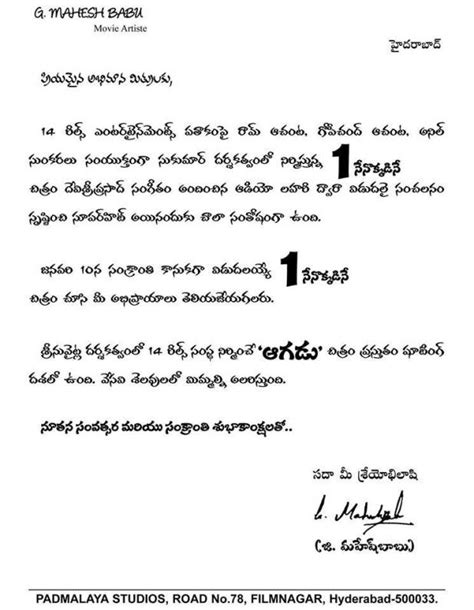 G. MAHESH BABU
Movie Artiste
హైదరాబాద్
ప్రియమైన అభిమాన మిత్రులకు,
14 రీల్స్ ఎంటర్‌టైన్‌మెంట్స్ పతాకంపై రామ్ ఆచంట, గోపీచంద్ ఆచంట, అనిల్
సుంకరలు సంయుక్తంగా సుకుమార్ దర్శకత్వంలో నిర్మిస్తున్న 1 నేనొక్కడినే
చిత్రం దేవిశ్రీప్రసాద్ సంగీతం అందించిన ఆడియో లహరి ద్వారా విడుదలై సంచలనం
సృష్టించి సూపర్‌హిట్ అయినందుకు చాలా సంతోషంగా ఉంది.
జనవరి 10న సంక్రాంతి కానుకగా విడుదలయ్యే 1 నేనొక్కడినే
చిత్రం చూసి మీ అభిప్రాయాలు తెలియజేయగలరు.
శ్రీనువైట్ల దర్శకత్వంలో 14 రీల్స్ సంస్థ నిర్మించే 'ఆగడు' చిత్రం ప్రస్తుతం షూటింగ్
దశలో ఉంది. వేసవి శెలవులలో మిమ్మల్ని అలరిస్తుంది.
నూతన సంవత్సర మరియు సంక్రాంతి శుభాకాంక్షలతో..
సదా మీ శ్రేయోభిలాషి
G. Maheshbabu
(జి. మహేష్‌బాబు)
PADMALAYA STUDIOS, ROAD No.78, FILMNAGAR, Hyderabad-500033.